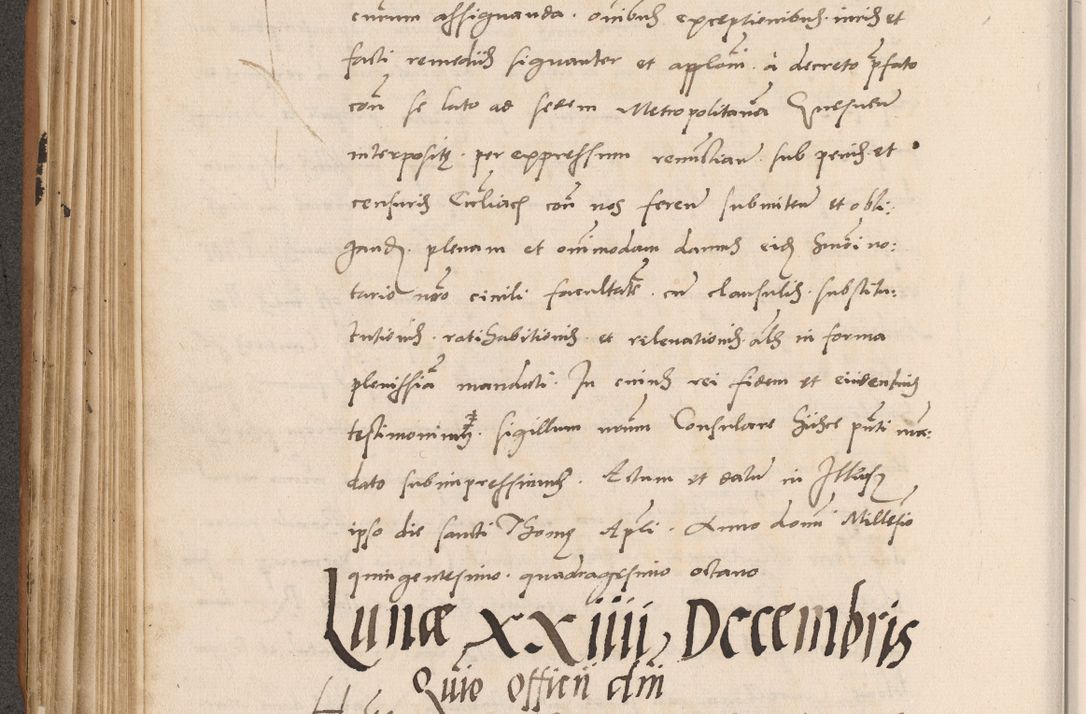 eurum assignanda. oībus exceptionibus iuris et
facti remediis signanter et applōni à decreto p̄fato
con̄ se lato ad sedem Metropolitanā Gnesnen̄
interpositę. per expressum renūctian̄. sub penis et
censuris Eccliacis con̄ nos feren̄ submitten̄ et obli:
gand̄. plenam et oīmodam damus eid̄ Simōi no:
tario nr̄o civili facultatē. cū clausulis. substitu:
tutionis. ratihabitionis. et relevationis. als in forma
plenissia mandati. In cuius rei fidem et evidentius
testimonium. sigillum nr̄um Consulare hiisce pn̄ti man:
dato subimpressimus. Actum et datū in
ipso die sancti Thomę Apli. Anno domī Millesio
quingentesimo. quadragesimo octavo
Lunæ XXIIII Decembris
Quie officii dn̄i